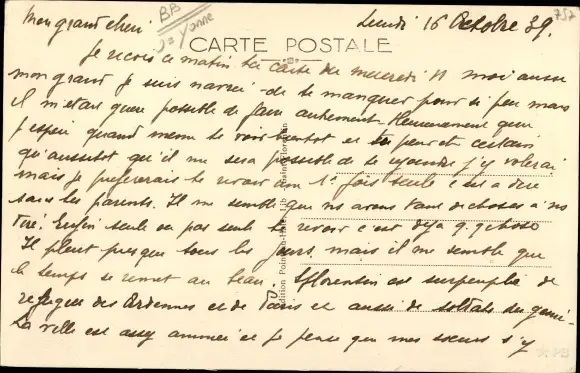 BB
Yonne
757
Mon grand cheri
Lundi 16 Octobre 39.
CARTE POSTALE
Je recois ce matin ta carte du mercredi 11 moi aussi
mon grand je suis navrée de te manquer pour si peu mais
il m'etait guere possible de faire autrement. Heureusement que
j'espere quand meme te voir bientot et tu peux etre certain
qu'aussitot qu'il me sera possible de te rejoindre j'y volerai
mais je prefererais te revoir une 1e fois seule c'est a dire
sans les parents. Il me semble que ns avons tant de choses a ns
dire. Enfin seule ou pas seule te revoir c'est deja q.q chose
Il pleut presque tous les jours, mais il me semble que
le temps se remet au beau. St florentin est surpeuplé de
refugiés des Ardennes et de Paris et aussi de soldats du genie.
La ville est assez animée et je pense que mes soeurs s'y